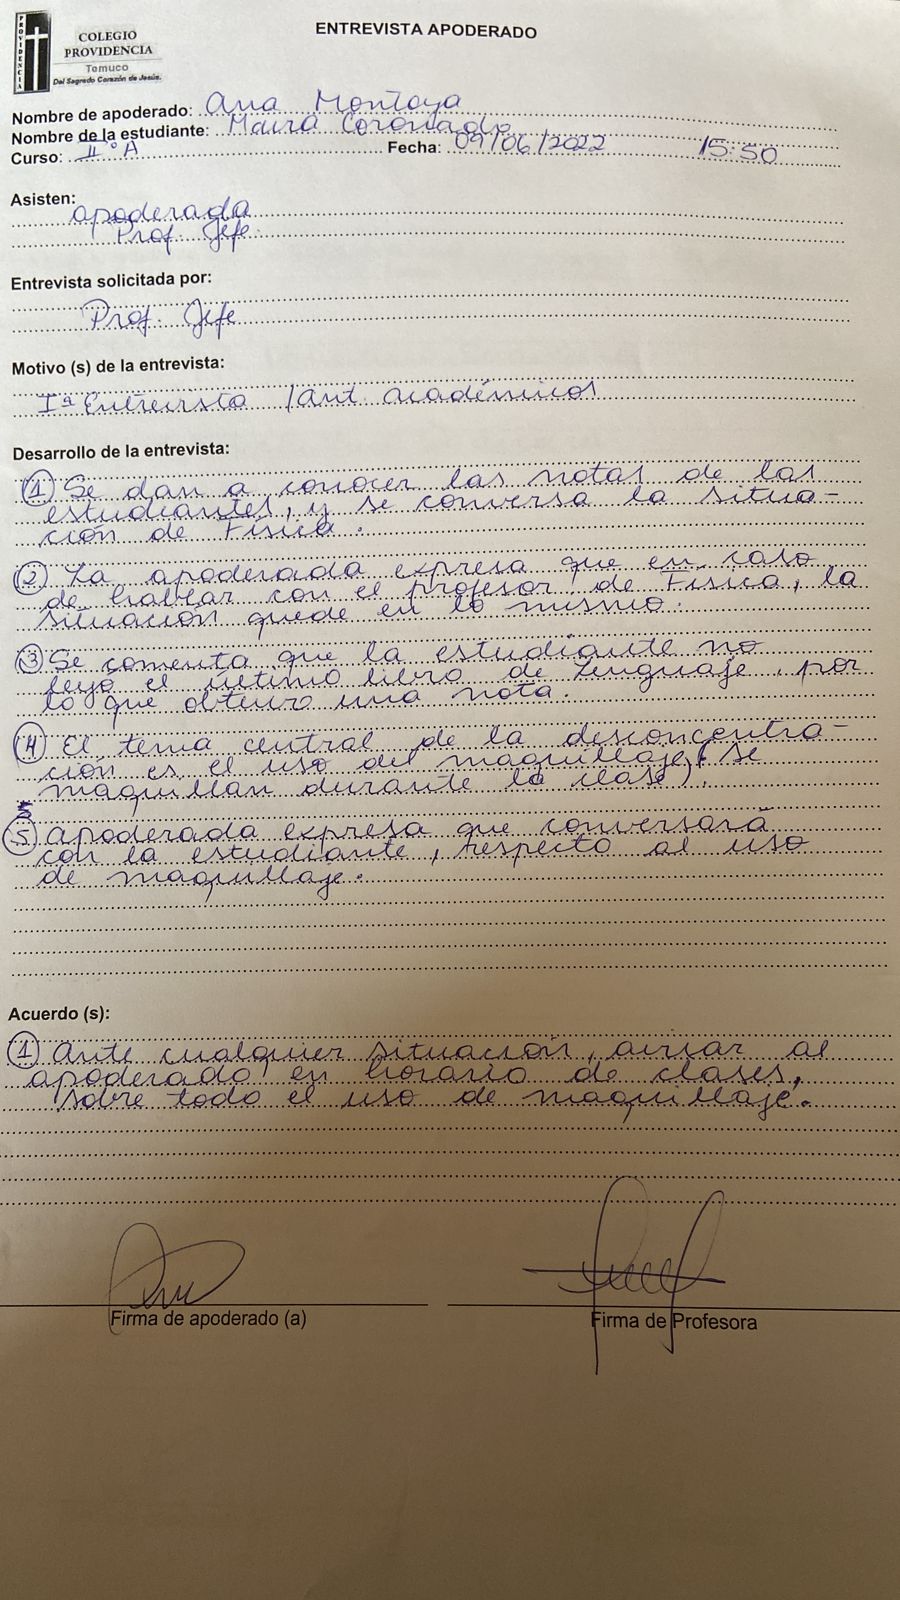 ENTREVISTA APODERADO
PROVIDENCIA
COLEGIO
PROVIDENCIA
Temuco
Del Sagrado Corazón de Jesús.
Nombre de apoderado: Ana Montoya
Nombre de la estudiante: Maira Coronado
Curso: II°A Fecha: 09/06/2022 15:50
Asisten:
apoderada
Prof. Jefe.
Entrevista solicitada por:
Prof. Jefe
Motivo (s) de la entrevista:
Iª Entrevista / Ant. académicos
Desarrollo de la entrevista:
① Se dan a conocer las notas de las
estudiantes, y se conversa la situa-
ción de Física.
② La apoderada expresa que en caso
de hablar con el profesor de Física, la
situación quede en lo mismo.
③ Se comenta que la estudiante no
leyó el último libro de Lenguaje, por
lo que obtuvo una nota.
④ El tema central de la desconcentra-
ción es el uso del maquillaje (se
maquillan durante la clase).
⑤ Apoderada expresa que conversará
con la estudiante, respecto al uso
de maquillaje.
Acuerdo (s):
① Ante cualquier situación, avisar al
apoderado en horario de clases,
sobre todo el uso de maquillaje.
Firma de apoderado (a) Firma de Profesora